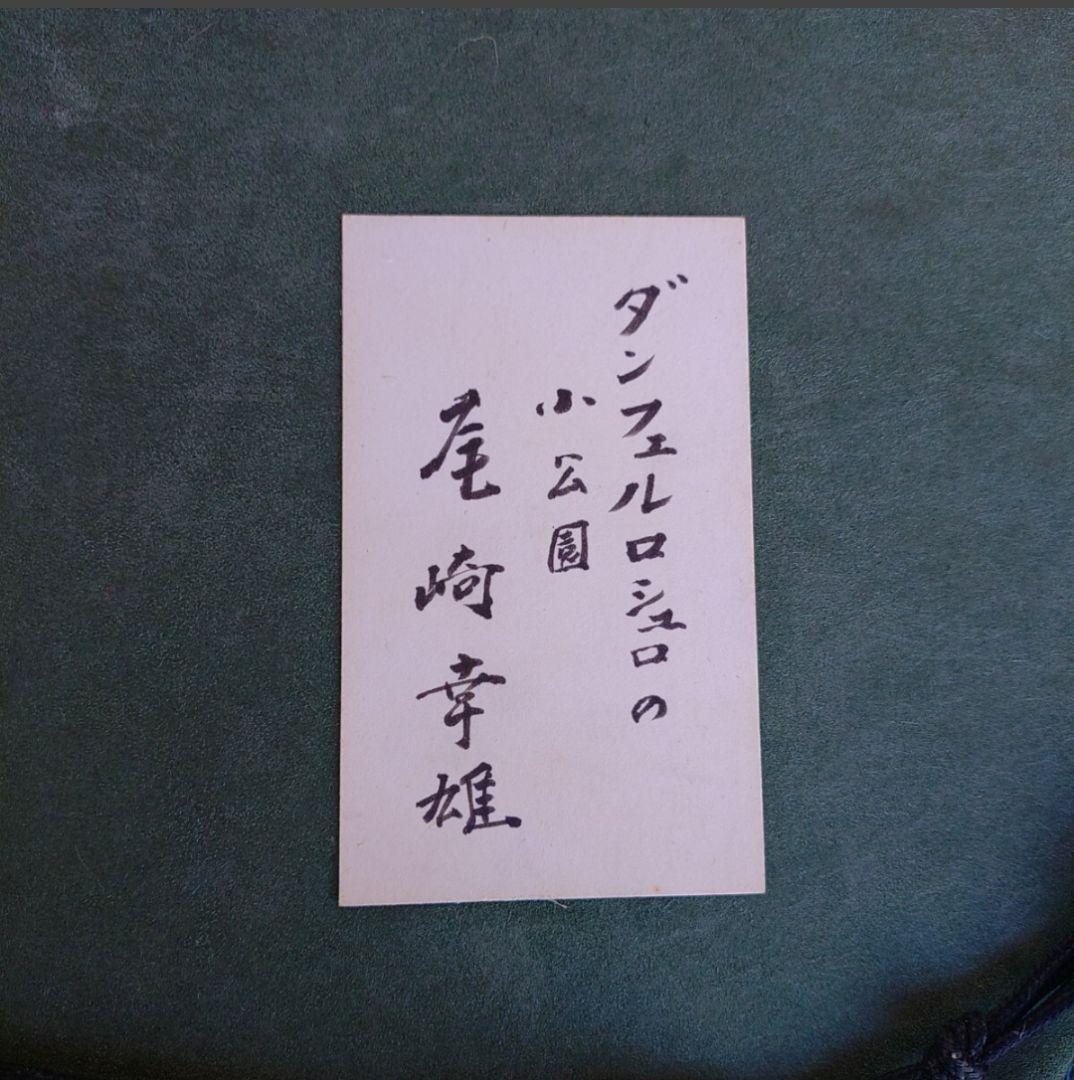 ダンフェルロシュロの
小公園
尾崎幸雄